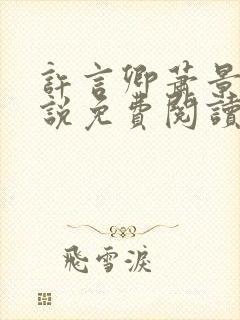 許言卿蕭景
說免費閱讀
飛雪淚